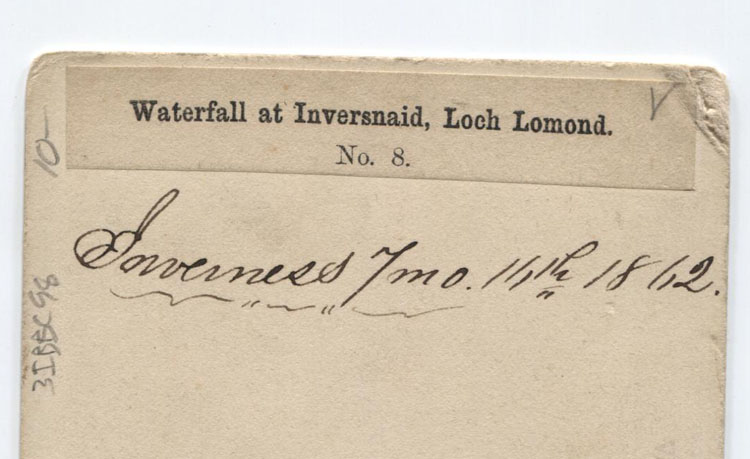 Waterfall at Inversnaid, Loch Lomond.
No. 8.
Inverness 7mo. 14th 1862.
10—